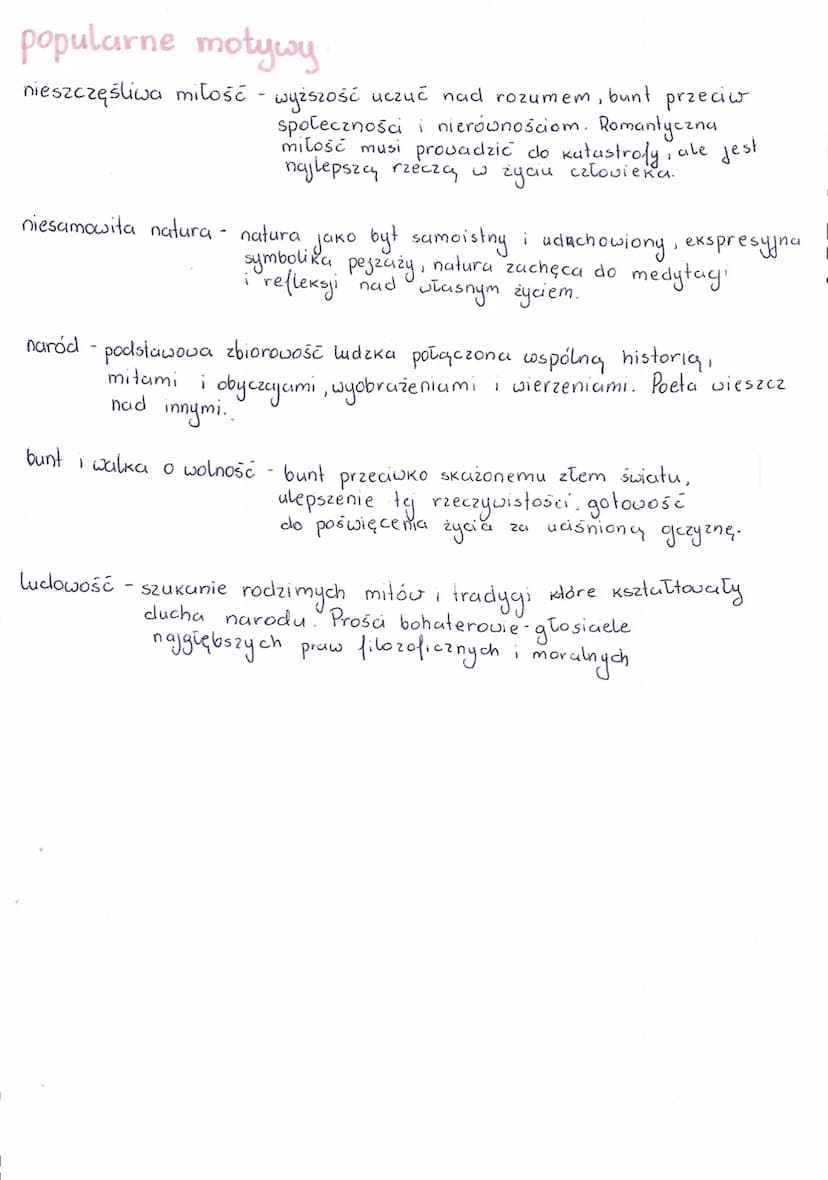 popularne motywy
nieszczęśliwa miłość - wyższość uczuć nad rozumem, bunt przeciw
społeczności i nierównościom. Romantyczna
miłość musi prowadzić do katastrofy, ale jest
najlepszą rzeczą w życiu człowieka.
niesamowita natura - natura jako byt samoistny i uduchowiony, ekspresyjna
symbolika pejzaży, natura zachęca do medytacji
i refleksji nad własnym życiem.
naród - podstawowa zbiorowość ludzka połączona wspólną historią,
mitami i obyczajami, wyobrażeniami i wierzeniami. Poeta wieszcz
nad innymi.
bunt i walka o wolność - bunt przeciwko skażonemu złem światu,
ulepszenie tej rzeczywistości, gotowość
do poświęcenia życia za uciśnioną ojczyznę.
ludowość - szukanie rodzimych mitów i tradycji które kształtowały
ducha narodu. Prości bohaterowie - głosiciele
najgłębszych praw filozoficznych i moralnych